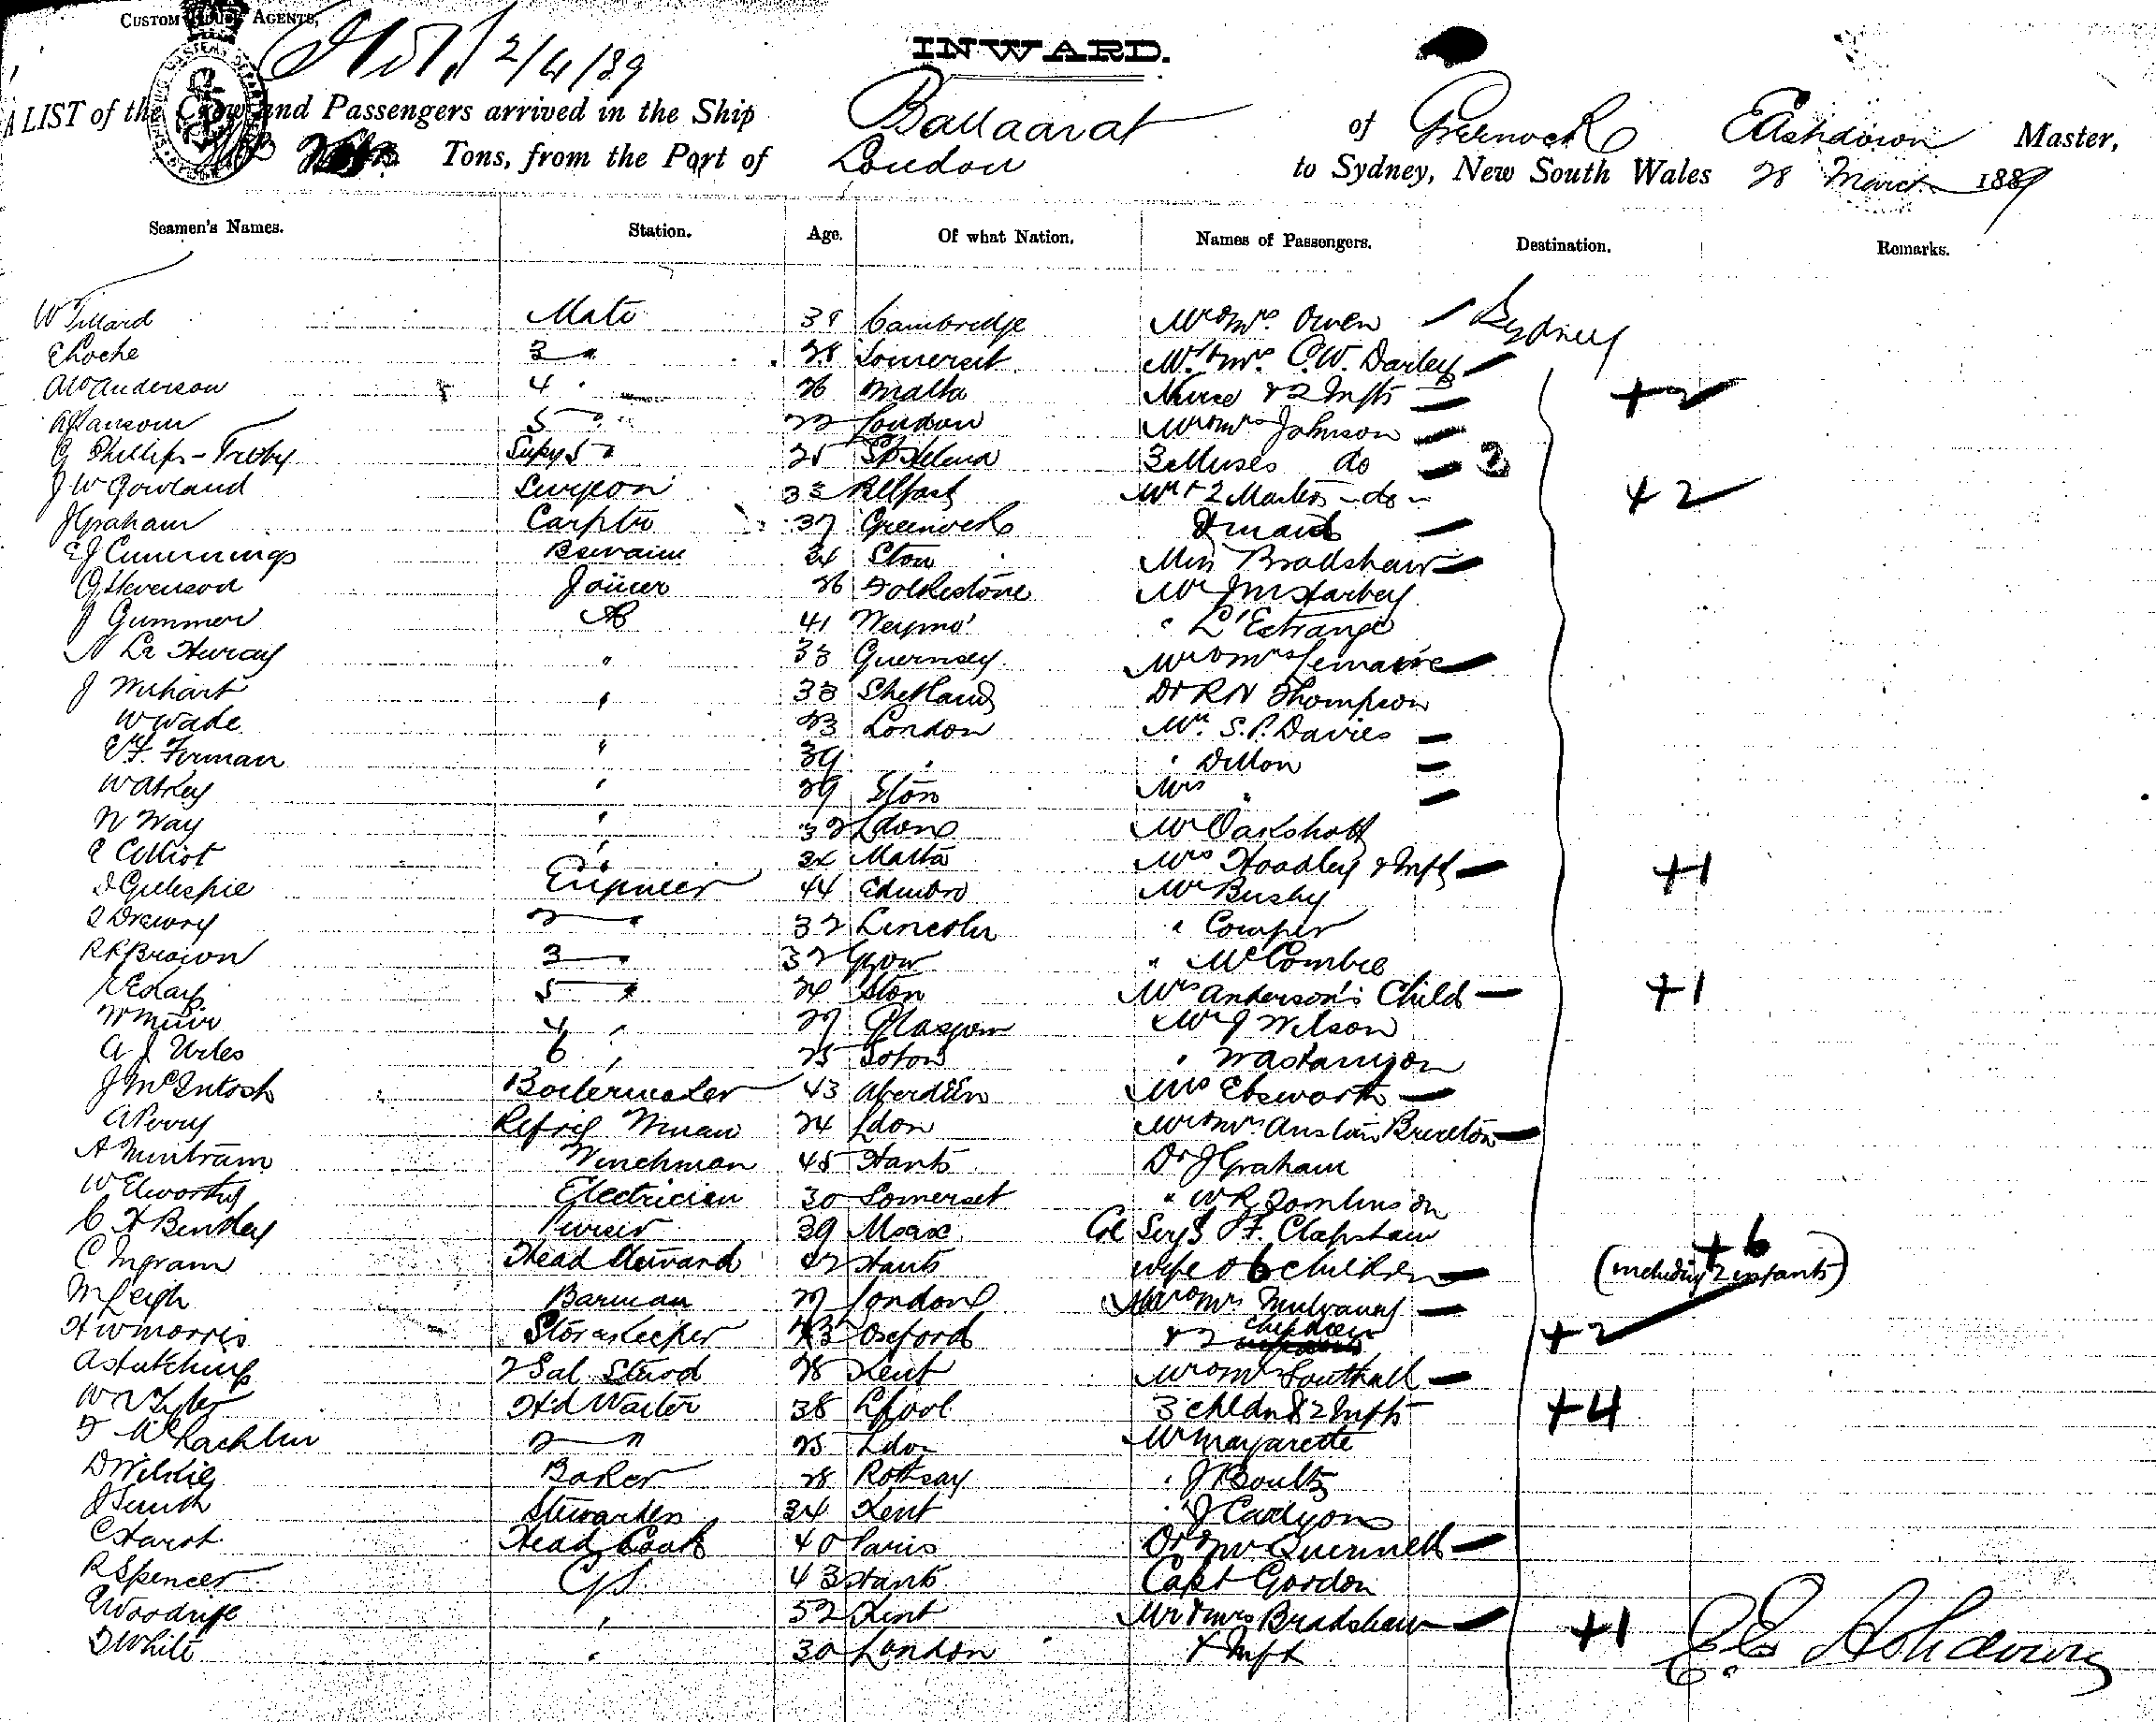 CUSTOM HOUSE AGENTS,
2/4/89
INWARD.
A LIST of the Crew and Passengers arrived in the Ship Ballaarat of Greenock E Ashdown Master,
Tons, from the Port of London to Sydney, New South Wales 28 March 1889
Seamen's Names. Station. Age. Of what Nation. Names of Passengers. Destination. Remarks.
W Tillard Mate 39 Cambridge Mr & Mrs Owen Sydney
E Roche 3 " 28 Somerset Mr & Mrs C.W. Darley
A W Anderson 4 " 26 Malta Nurse & 2 Infts +2
A Ransom 5 " 22 London Mr & Mrs Johnson
G Phillips-Treby Supy 5 " 25 St Helena 3 Misses do 3
J W Gowland Surgeon 33 Belfast Mr & 2 Masters - do - +2
J Graham Carptr 37 Greenock & maid
E J Cummings Bswain 34 Ston Miss Bradshaw
G Stevenson Joiner 26 Folkestone Mr J M Harbey
J Gummer AB 41 Weymo' " L'Estrange
N Le Huray " 33 Guernsey Mr & Mrs Lemaire
J " 33 Shetland Dr R N Thompson
W Wade 23 London Mr. S.P. Davies
E F. Firman " 39 " " Dillon
W Atkey " 29 Ston Mrs "
W Way " 32 Ldon Mr Oakshott
E Elliot " 34 Malta Mrs Hoadley & Inft +1
D Gillespie Engineer 44 Edinbro Mr Busby
Drewry 2 " 32 Lincoln " Cowper
R R Brown 3 " 32 Ggow " McCombie
5 " 24 Ston Mrs Anderson's Child +1
W Muir 4 " 27 Glasgow Mr J Wilson
A J Urles 6 " 25 Soton "
J McIntosh Boilermaker 43 Aberdeen Mrs Ebsworth
A Perry Refrig Man 24 Ldon Mr & Mrs Austin Brereton
A Mintram Winchman 45 Hants Dr J Graham
W Elworthy Electrician 30 Somerset " W R Tomlinson
C H Binkley Purser 39 Col Sergt F. Clapshaw
C Ingram Head Steward 42 Hants wife & 6 children +6 (including 2 infants)
M Leigh Barman 27 London Mr & Mrs Mulvaney
H W Morris Storekeeper 43 Oxford & 2 children +2
A Hutchings 2 Sal Stwd 28 Kent Mr & Mrs Southall
W Tyler Hd Waiter 38 Lpool 3 chldn & 2 Infts +4
F McLachlin 2 " 25 Ldon Mr Margarette
D Wilkie Baker 28 Rothsay " J Boultz
J Smith Stewardess 34 Kent " J Carlyons
C Harst Head Cook 40 Paris Dr & Mrs Quennell
R Spencer GS 43 Hants Capt Gordon
E Woodriffe " 52 Kent Mr & Mrs Bradshaw
D White " 30 London & Inft +1 E. G. Ashdown